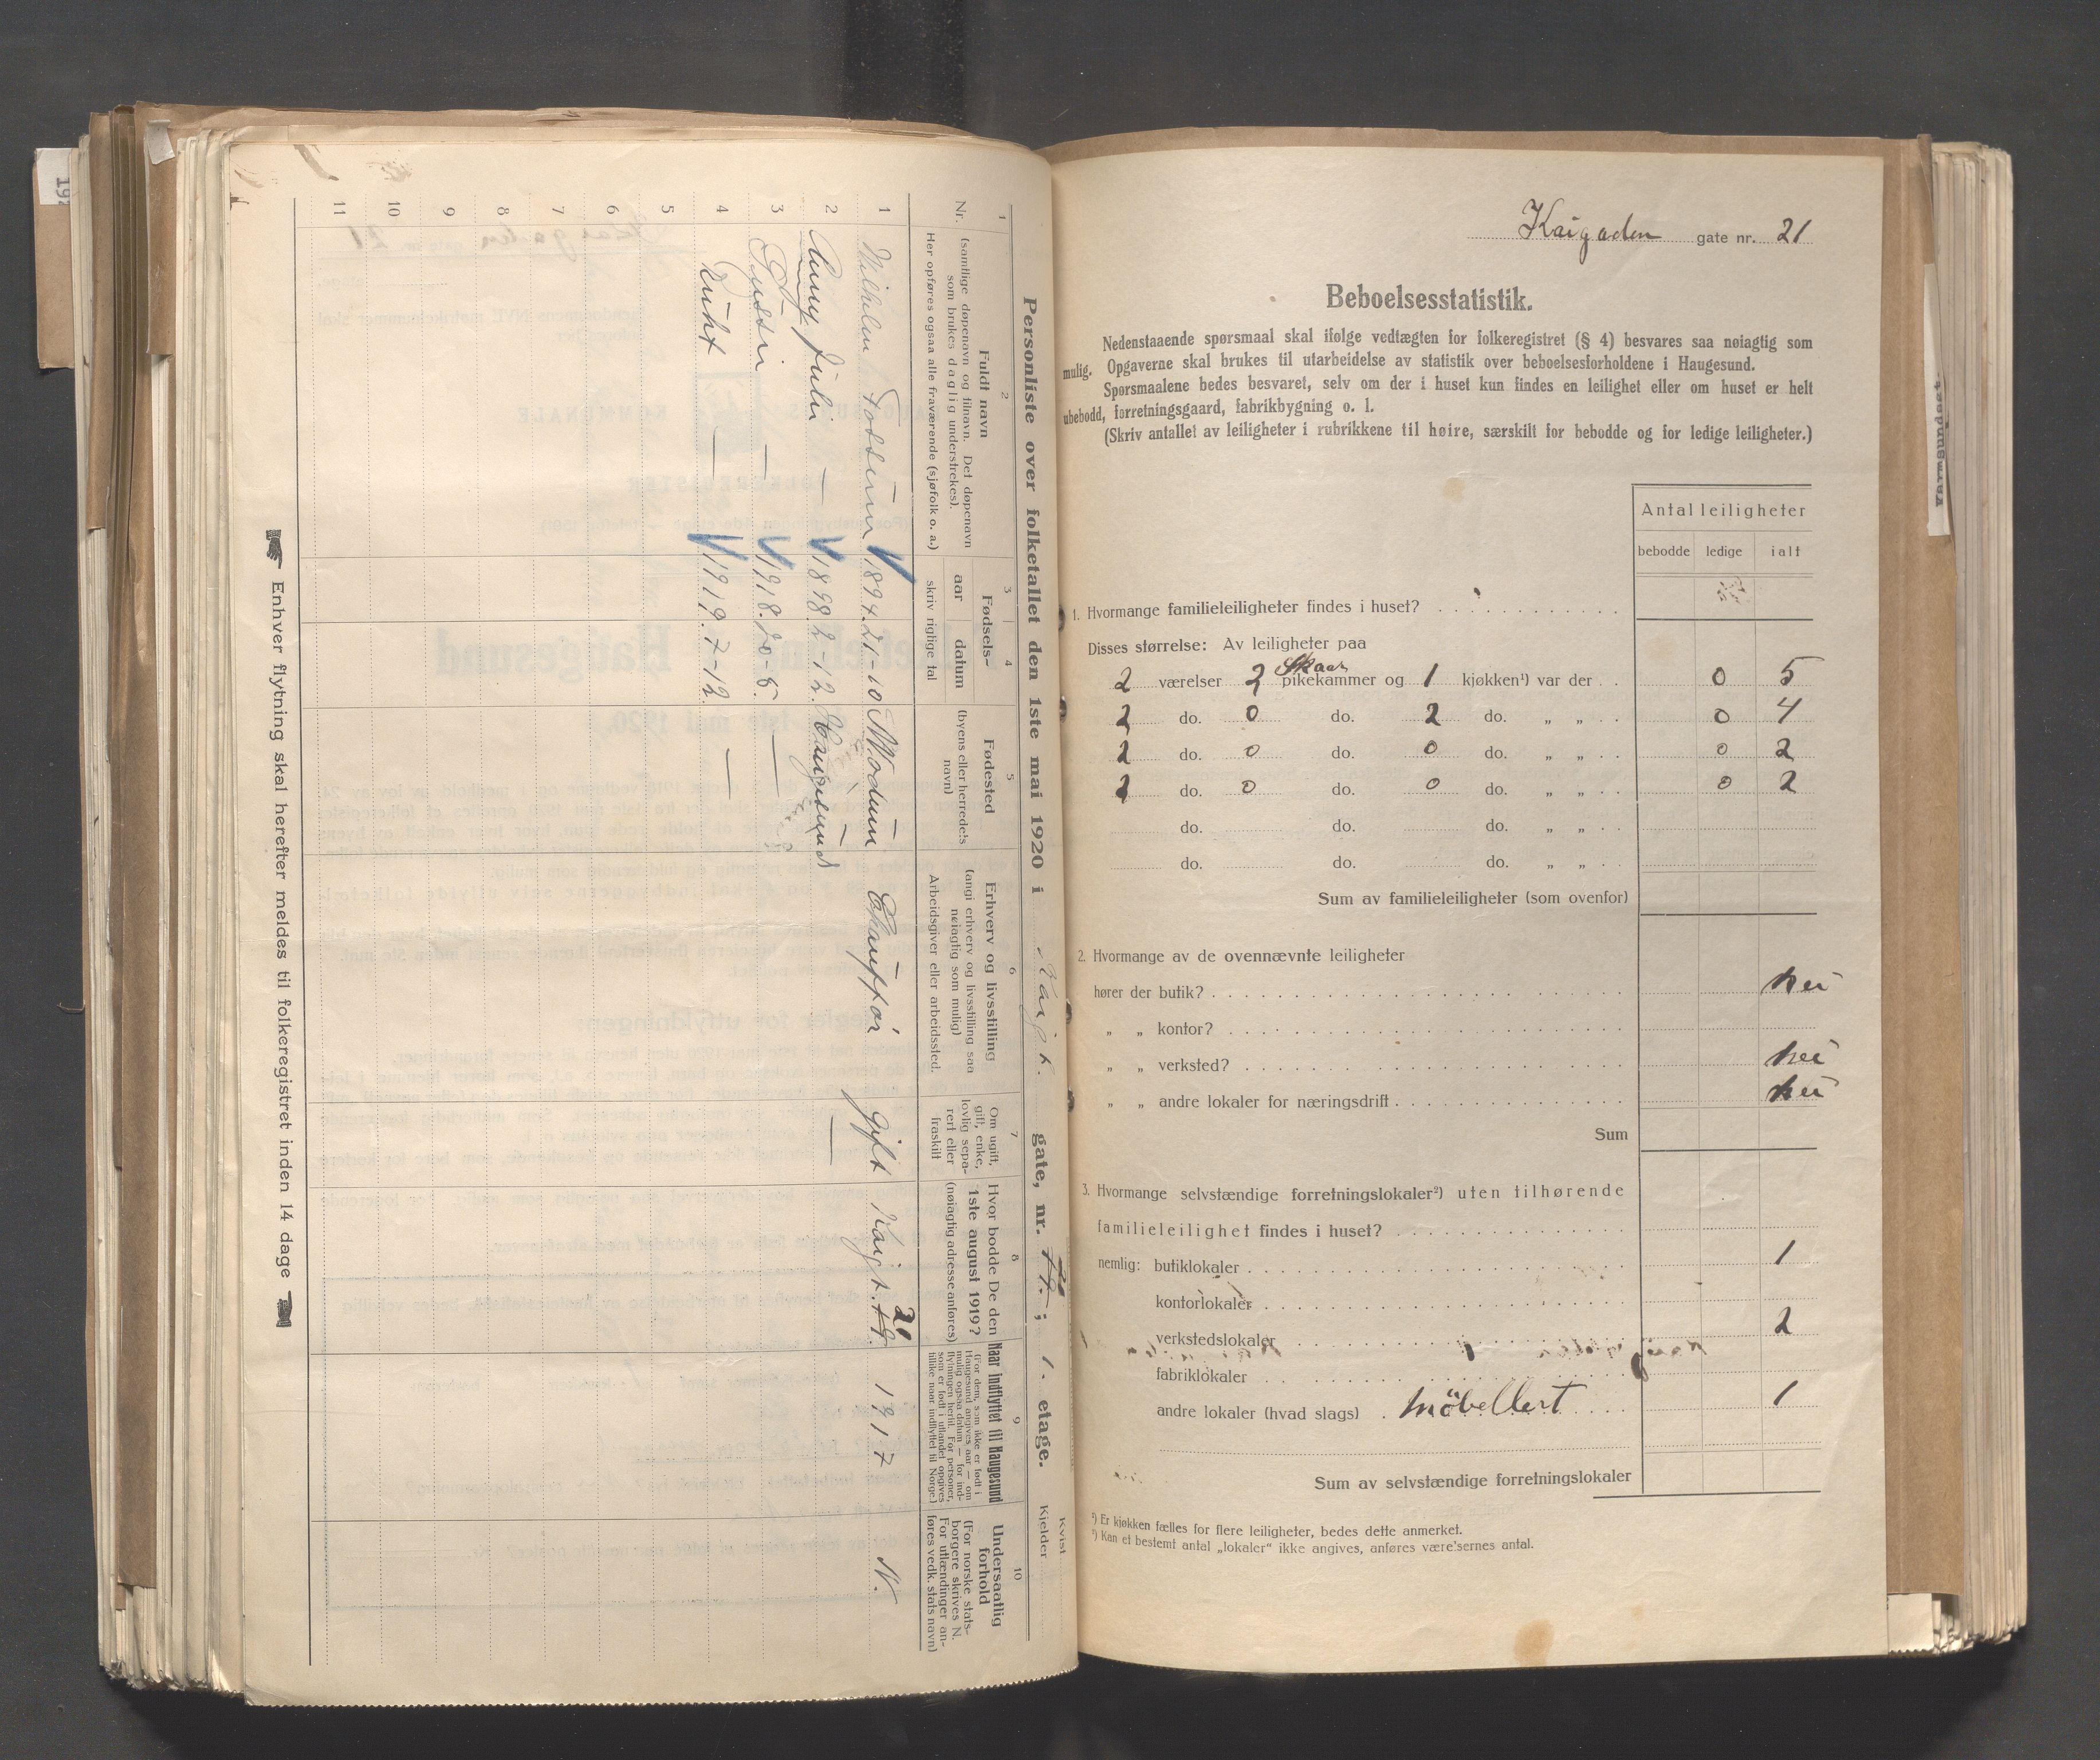 Personliste over folketallet den 1ste mai 1920 i Kaigt. gate, nr. ; 1. etage.
Kvist
Kjelder
1
Nr.
2
Fuldt navn
(samtlige døpenavn og tilnavn. Det døpenavn
som brukes daglig understrekes).
Her opføres ogsaa alle fraværende (sjøfolk o. a.)
3 4
Fødsels-
aar datum
skriv rigtige tal
5
Fødested
(byens eller herredets
navn)
6
Erhverv og livsstilling
(angi erhverv og livsstilling saa
nøiagtig som mulig)
Arbeidsgiver eller arbeidssted.
7
Om ugift,
gift, enke,
lovlig sepa-
rert eller
fraskilt
8
Hvor bodde De den
1ste august 1919?
(nøiagtig adresse anføres)
9
Naar indflyttet til Haugesund
(For dem, som ikke er født i
Haugesund angives aar — om
mulig ogsaa datum — for ind-
flytningen hertil. For personer,
som er født i utlandet opgives
tillike naar indflyttet til Norge.)
10
Undersaatlig
forhold
(For norske stats-
borgere skrives N.
For utlændinger an-
føres vedk. stats navn)
1 Wilhelm Fossum 1894. 21-10 Modum Chauffør gift Kaigt. 21 1917 N.
2 Anny Julie — 1898. 2-12. Haugesund —
3 — 1918. 20-8. —
4 — 1919. 7-12. —
5
6
7
8
9
10
11
Enhver flytning skal herefter meldes til folkeregistret inden 14 dage
Kaigaden gate nr. 21
Beboelsesstatistik.
Nedenstaaende spørsmaal skal ifølge vedtægten for folkeregistret (§ 4) besvares saa nøiagtig som
mulig. Opgaverne skal brukes til utarbeidelse av statistik over beboelsesforholdene i Haugesund.
Spørsmaalene bedes besvaret, selv om der i huset kun findes en leilighet eller om huset er helt
ubebodd, forretningsgaard, fabrikbygning o. l.
(Skriv antallet av leiligheter i rubrikkene til høire, særskilt for bebodde og for ledige leiligheter.)
Antal leiligheter
bebodde ledige ialt
1. Hvormange familieleiligheter findes i huset?
Disses størrelse: Av leiligheter paa
2 værelser 2 pikekammer og 1 kjøkken¹) var der . . 0 5
2 do. 0 do. 2 do. „ „ . . 0 4
2 do. 0 do. 0 do. „ „ . . 0 2
do. 0 do. 0 do. „ „ . . 0 2
do. do. do. „ „ . .
do. do. do. „ „ . .
Sum av familieleiligheter (som ovenfor)
2. Hvormange av de ovennævnte leiligheter
hører der butik? nei
„ „ kontor?
„ „ verksted? nei
„ „ andre lokaler for næringsdrift nei
Sum
3. Hvormange selvstændige forretningslokaler²) uten tilhørende
familieleilighet findes i huset?
nemlig: butiklokaler 1
kontorlokaler
verkstedslokaler 2
fabriklokaler
andre lokaler (hvad slags) 1
Sum av selvstændige forretningslokaler
¹) Er kjøkken fælles for flere leiligheter, bedes dette anmerket.
²) Kan et bestemt antal „lokaler“ ikke angives, anføres værelsernes antal.